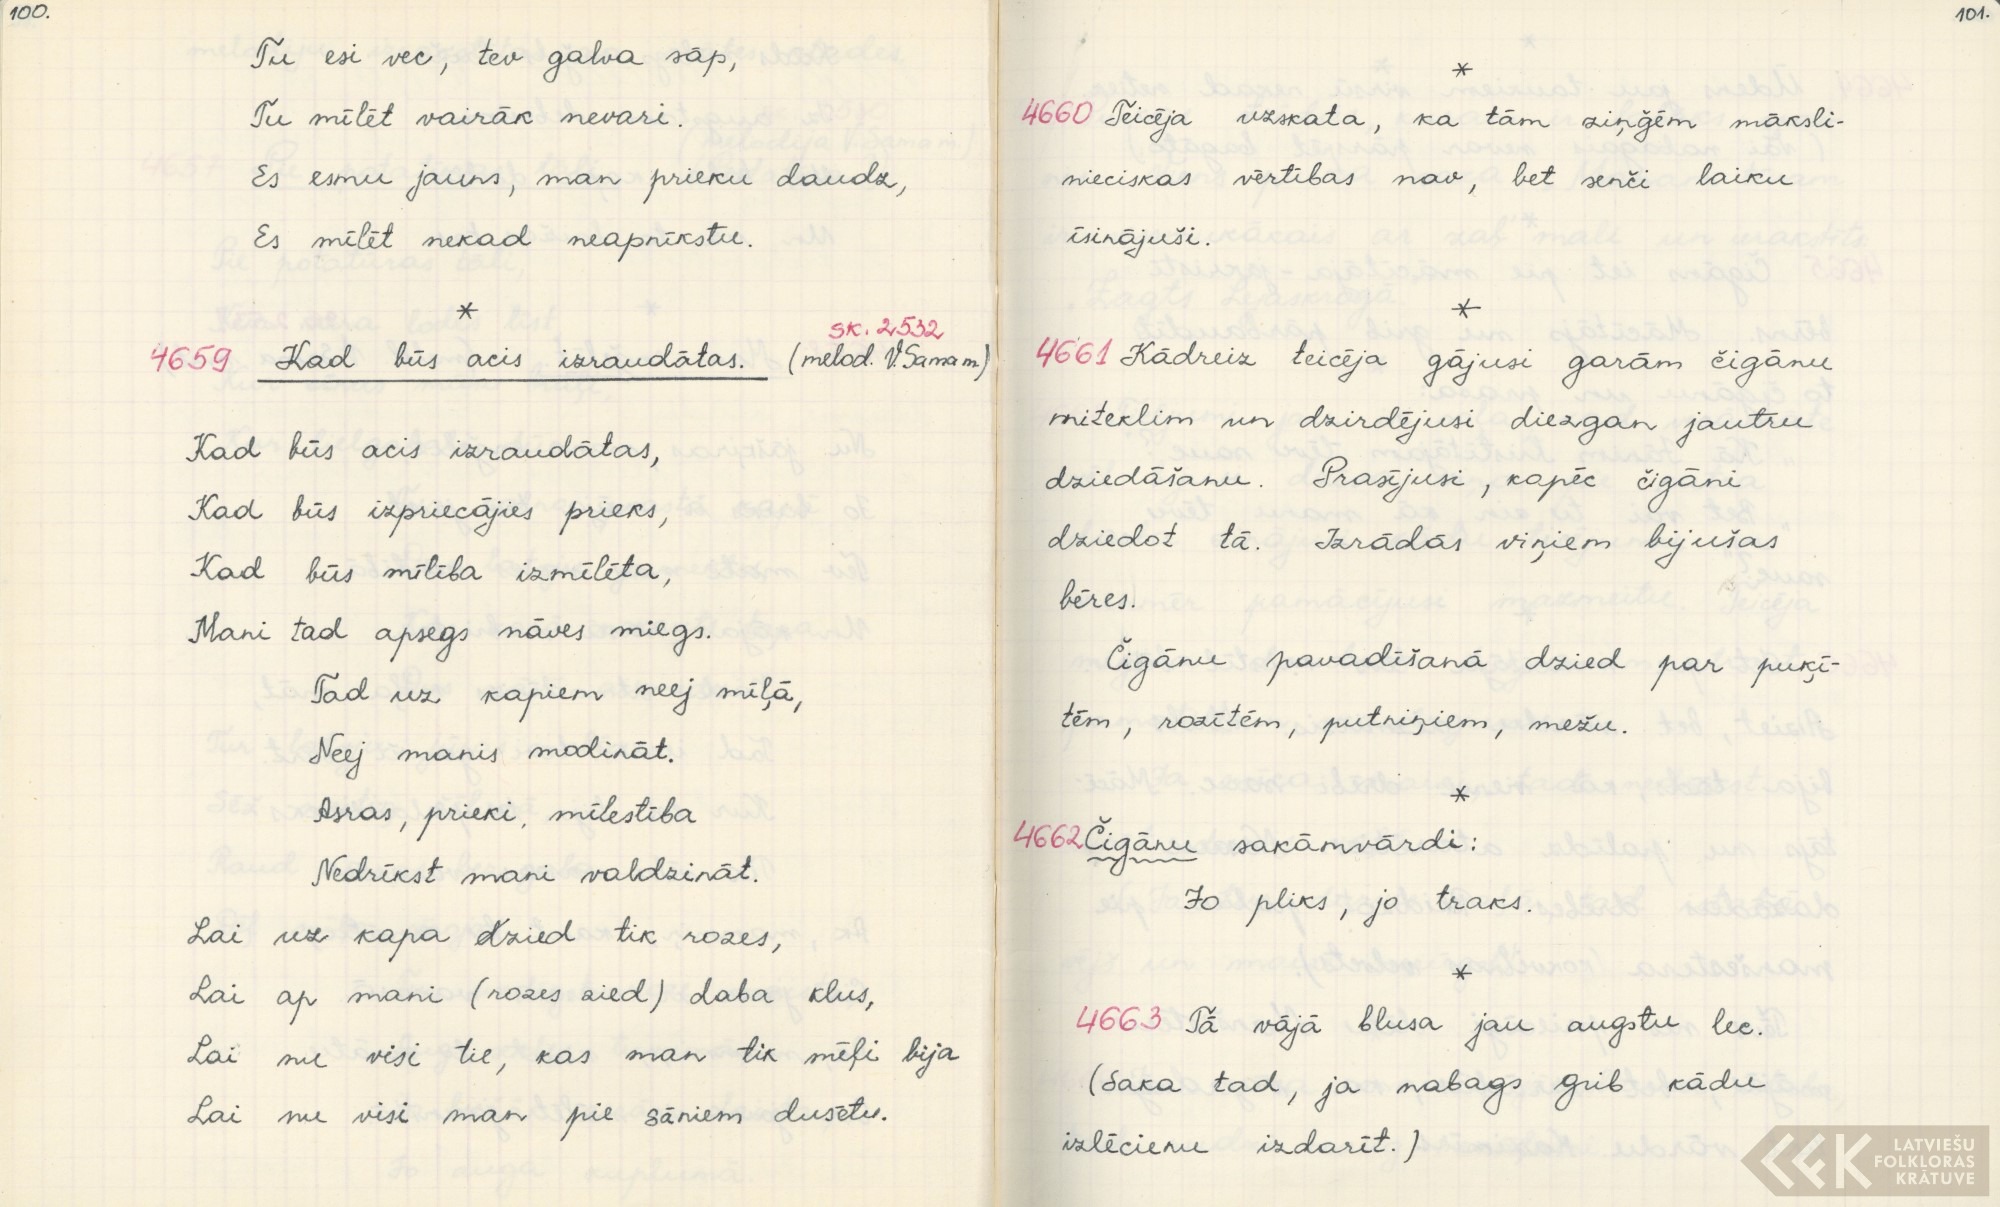 100.
Tu esi vec, tev galva sāp,
Tu mīlēt vairāk nevari.
Es esmu jauns, man prieku daudz,
Es mīlēt nekad neapnīkstu.
*
sk. 2532
4659 Kad būs acis izraudātas. (melod. V. Samam)
Kad būs acis izraudātas,
Kad būs izpriecājies prieks,
Kad būs mīlība izmīlēta,
Mani tad apsegs nāves miegs.
Tad uz kapiem neej mīļā,
Neej manis modināt.
Asras, prieki, mīlestība
Nedrīkst mani valdzināt.
Lai uz kapa dzied tik rozes,
Lai ap mani (rozes zied) daba klus,
Lai nu visi tie, kas man tik mēļi bija
Lai nu visi man pie sāniem dusētu.
101.
*
4660 Teicēja uzskata, ka tām ziņģēm māksli-
nieciskas vērtības nav, bet senči laiku
īsinājuši.
*
4661 Kādreiz teicēja gājusi garām čigānu
miteklim un dzirdējusi diezgan jautru
dziedāšanu. Prasījusi, kapēc čigāni
dziedot tā. Izrādās viņiem bijušas
bēres.
Čigānu pavadīšanā dzied par puķī-
tēm, rozītēm, putniņiem, mežu.
*
4662 Čigānu sakāmvārdi:
Jo pliks, jo traks.
*
4663 Tā vājā blusa jau augstu lec.
(Saka tad, ja nabags grib kādu
izlēcienu izdarīt.)
LATVIEŠU
FOLKLORAS
KRĀTUVE